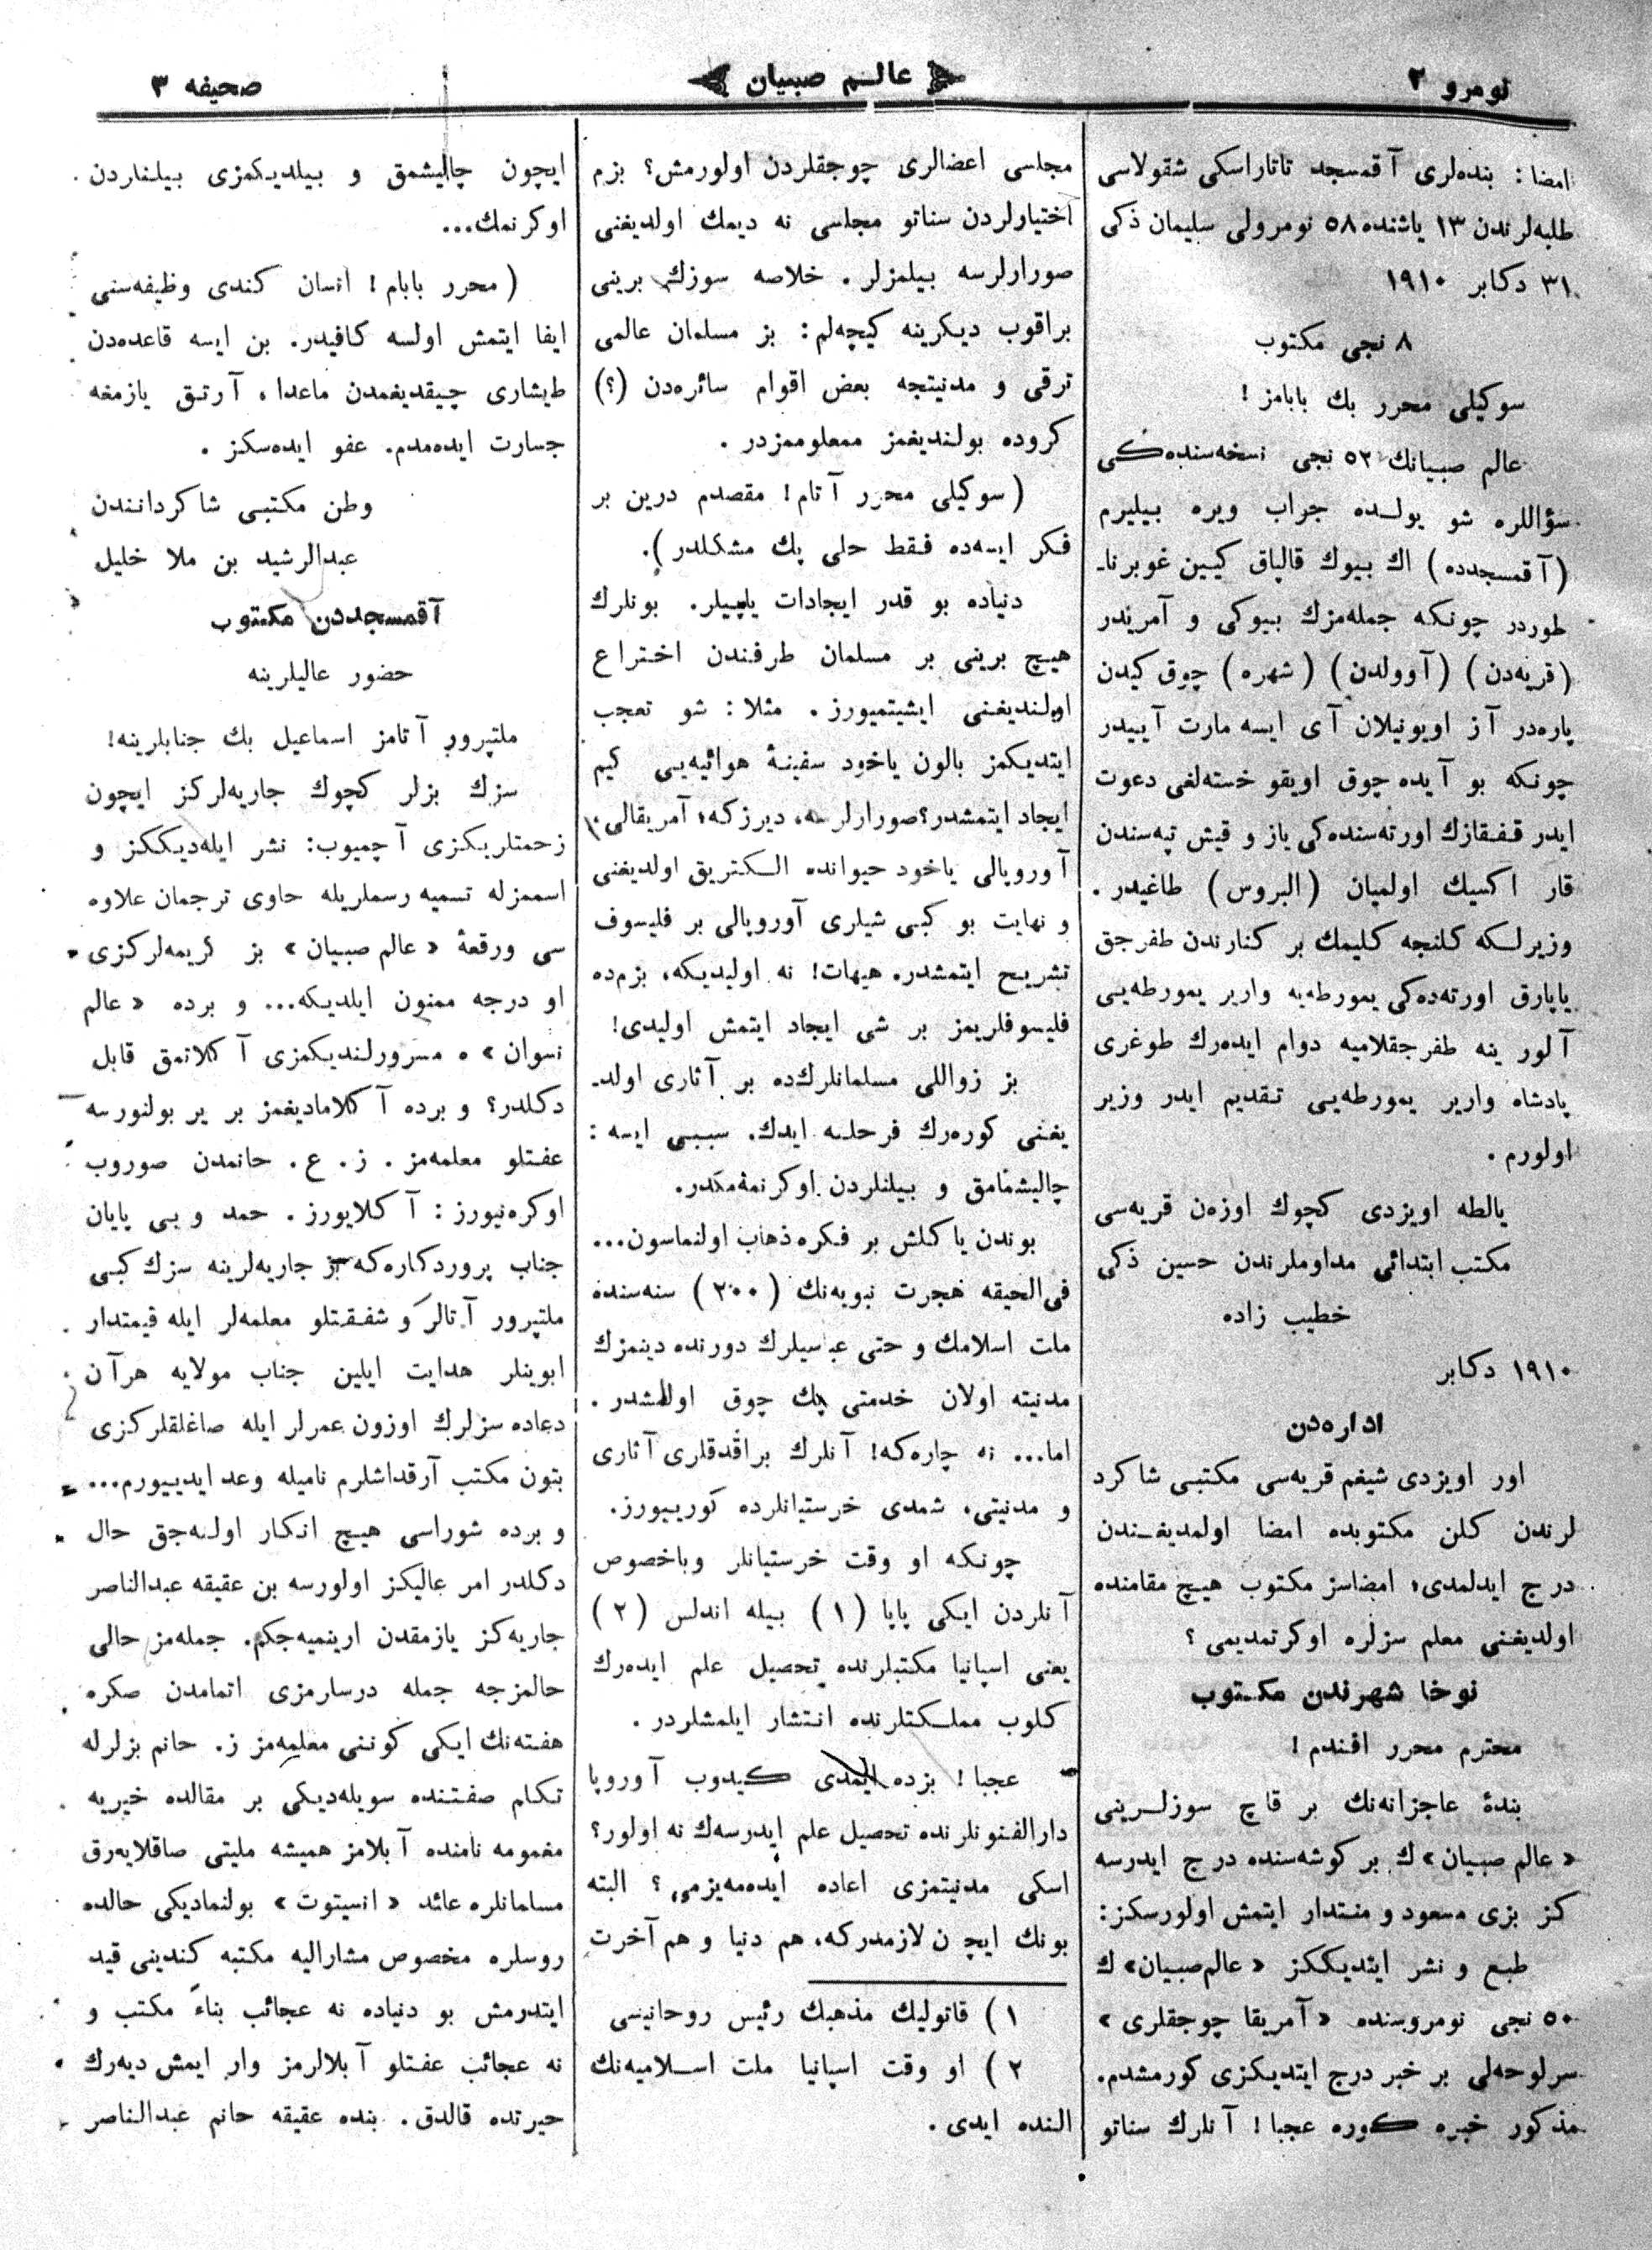 نومرو ٢
عالم صبيان
صحيفه ٣
امضا: بنده‌لرى آقمسجد تاتاراسكى شقولاسى
طلبه‌لرندن ١٣ ياشنده ٥٨ نومرولى سليمان ذكى
٣١ دكابر ١٩١٠
٨ نجى مكتوب
سوكيلى محرر بك بابامز!
عالم صبيانك ٥٢ نجى نسخه‌سنده‌كى
سؤاللره شو يولده جراب ويره بيليرم
(آقمسجدده) اك بيوك قالپاق كيين غوبرناـ
طوردر چونكه جمله‌مزك بيوكى و آمريدر
(قريه‌دن) (آوولدن) (شهره) چوق كيدن
پاره‌در آز اويونيلان آى ايسه مارت آييدر
چونكه بو آيده چوق اويقو خسته‌لغى دعوت
ايدر قفقازك اورته‌سنده‌كى ياز و قيش تپه‌سندن
قار اكسيك اولميان (البروس) طاغيدر.
وزيرلكه كلنجه كليمك بر كنارندن طفرجق
ياپارق اورته‌ده‌كى يمورطه‌يه وارير يمورطه‌يى
آلور ينه طفرجقلاميه دوام ايده‌رك طوغرى
پادشاه وارير يمورطه‌يى تقديم ايدر وزير
اولورم.
يالطه اويزدى كچوك اوزه‌ن قريه‌سى
مكتب ابتدائى مداوملرندن حسين ذكى
خطيب زاده
١٩١٠ دكابر
اداره‌دن
اور اويزدى شيغم قريه‌سى مكتبى شاكرد
لرندن كلن مكتوبده امضا اولمديغندن
درج ايدلمدى؛ امضاسز مكتوب هيچ مقامنده
اولديغنى معلم سزلره اوكرتمديمى؟
نوخا شهرندن مكتوب
محترم محرر افندم!
بندۀ عاجزانه‌نك بر قاچ سوزلرينى
«عالم صبيان»ك بر كوشه‌سنده درج ايدرسه
كز بزى مسعود و منتدار ايتمش اولورسكز:
طبع و نشر ايتديككز «عالم صبيان»ك
٥٠ نجى نومروسنده «آمريقا چوجقلرى»
سرلوحه‌لى بر خبر درج ايتديكزى كورمشدم.
مذكور خبره كوره عجبا! آنلرك سناتو
مجلسى اعضالرى چوجقلردن اولورمش؟ بزم
اختيارلردن سناتو مجلسى نه ديمك اولديغنى
صورارلرسه بيلمزلر. خلاصه سوزك برينى
براقوب ديكرينه كيچه‌لم: بز مسلمان عالمى
ترقى و مدنيتجه بعض اقوام سائره‌دن (؟)
كروده بولنديغمز ممعلوممزدر.
(سوكيلى محرر آتام! مقصدم درين بر
فكر ايسه‌ده فقط حلى پك مشكلدر).
دنياده بو قدر ايجادات ياپيلر. بونلرك
هيچ برينى بر مسلمان طرفندن اختراع
اولنديغنى ايشيتميورز. مثلا: شو تعجب
ايتديكمز بالون ياخود سفينۀ هوائيه‌يى كيم
ايجاد ايتمشدر؟ صورارلرسه، ديرزكه؛ آمريقالى
آوروپالى ياخود حيوانده الكتريق اولديغنى
و نهايت بو كبى شيلرى آوروپالى بر فليسوف
تشريح ايتمشدر. هيهات! نه اوليديكه، بزم‌ده
فليسوفلريمز بر شى ايجاد ايتمش اوليدى!
بز زواللى مسلمانلرك‌ده بر آثارى اولدـ
يغنى كوره‌رك فرحلنه ايدك. سببى ايسه:
چاليشمامق و بيلنلردن اوكرنمه‌مكدر.
بوندن ياكلش بر فكره ذهاب اولنماسون...
فى‌الحيقه هجرت نبويه‌نك (٢٠٠) سنه‌سنده
ملت اسلامك و حتى عباسيلرك دورنده دينمزك
مدنيته اولان خدمتى پك چوق اولمشدر.
اما... نه چاره‌كه! آنلرك براقدقلرى آثارى
و مدنيتى، شمدى خرستيانلرده كوريبورز.
چونكه او وقت خرستيانلر وباخصوص
آنلردن ايكى پاپا (١) بيله اندلس (٢)
يعنى اسپانيا مكتبلرنده تحصيل علم ايده‌رك
كلوب مملكتلرنده انتشار ايلمشلردر.
عجبا! بزده ايمدى كيدوب آوروپا
دارالفنونلرنده تحصيل علم ايدرسه‌ك نه اولور؟
اسكى مدنيتمزى اعاده ايده‌مه‌يزمى؟ البته
بونك ايچن لازمدركه، هم دنيا و هم آخرت
١) قاتوليك مذهبك رئيس روحانيسى
٢) او وقت اسپانيا ملت اسلاميه‌نك
النده ايدى.
ايچون چاليشمق و بيلديكمزى بيلناردن
اوكرنمك...
(محرر بابام! انسان كندى وظيفه‌سنى
ايفا ايتمش اولسه كافيدر. بن ايسه قاعده‌دن
طيشارى چيقديغمدن ماعدا، آرتق يازمغه
جسارت ايده‌مدم. عفو ايده‌سكز.
وطن مكتبى شاكردانندن
عبدالرشيد بن ملا خليل
آقمسجددن مكتوب
حضور عاليلرينه
ملتپرور آتامز اسماعيل بك جنابلرينه!
سزك بزلر كچوك جاريه‌لركز ايچون
زحمتلريكزى آچميوب: نشر ايله‌ديككز و
اسممزله تسميه رسملريله حاوى ترجمان علاوه
سى ورقعۀ «عالم صبيان» بز كريمه‌لركزى
او درجه ممنون ايلديكه... و برده «عالم
نسوان» ه مسرورلنديكمزى آكلاتمق قابل
دكلدر؟ و برده آكلاماديغمز بر ير بولنورسه
عفتلو معلمه‌مز. ز. ع. حانمدن صوروب
اوكره‌نيورز: آكلايورز. حمد و بى پايان
جناب پروردكاره‌كه بز جاريه‌لرينه سزك كبى
ملتپرور آتالر و شفقتلو معلمه‌لر ايله قيمتدار
ابوينلر هدايت ايلين جناب مولايه هرآن
دعاده سزلرك اوزون عمرلر ايله صاغلقلركزى
بتون مكتب آرقداشلرم ناميله وعد ايدييورم...
و برده شوراسى هيچ انكار اولنه‌جق حال
دكلدر امر عاليكز اولورسه بن عقيقه عبدالناصر
جاريه‌كز يازمقدن ارينميه‌جكم. جمله‌مز حالى
حالمزجه جمله درسارمزى اتمامدن صكره
هفته‌نك ايكى كوننى معلمه‌مز ز. حانم بزلرله
تكلم صفتنده سويله‌ديكى بر مقالده خيريه
مغمومه نامنده آبلامز هميشه مليتى صاقلايه‌رق
مسامانلره عائد «انسيتوت» بولنماديكى حالده
روسلره مخصوص مشاراليه مكتبه كندينى قيد
ايتدرمش بو دنياده نه عجائب بناءً مكتب و
نه عجائب عفتلو آبلالرمز وار ايمش ديه‌رك
حيرتده قالدق. بنده عقيقه حانم عبدالناصر